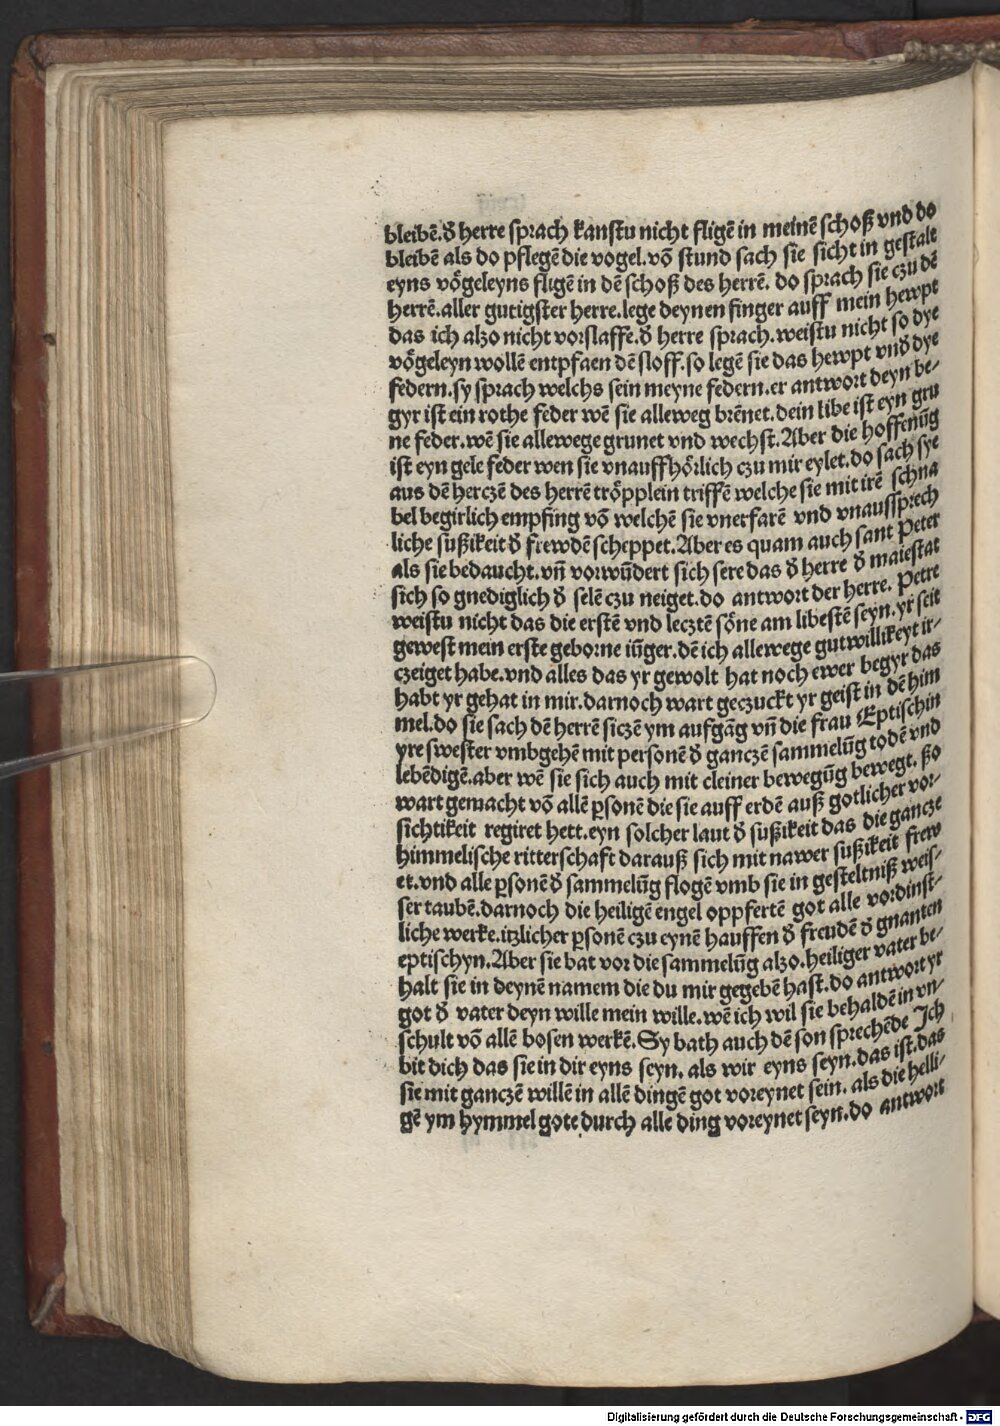 bleibē.d̄ herre sprach kanstu nicht fligē in meinē schoß vnd do
bleibē als do pflegē die vogel.vō stund sach sie sicht in gestalt
eyns vögeleyns fligē in dē schoß des herrē. do sprach sie czu dē
herrē.aller gutigster herre.lege deynen finger auff mein hewpt
das ich alzo nicht vorslaffe.d̄ herre sprach.weistu nicht so dye
vögeleyn wollē entpfaen dē sloff.so legē sie das hewpt vnd dye
federn.sy sprach welchs sein meyne federn.er antwort deyn be⸗
gyr ist ein rothe feder wē sie alleweg brēnet.dein libe ist eyn gru
ne feder.wē sie allewege grunet vnd wechst.Aber die hoffenūg
ist eyn gele feder wen sie vnauffhörlich czu mir eylet.do sach sye
aus dē herczē des herrē tröpplein triffē welche sie mit irē schna
bel begirlich empfing vō welchē sie vnerfarē vnd vnaussprech
liche sußikeit d̄ frewdē scheppet.Aber es quam auch sant Peter
als sie bedaucht.vn̄ vorwūdert sich sere das d̄ herre d̄ maiestat
sich so gnediglich d̄ selē czu neiget.do antwort der herre. Petre
weistu nicht das die erstē vnd lecztē söne am libestē seyn.yr seit
gewest mein erste geborne iūger.dē ich allewege gutwillikeyt ir⸗
czeiget habe.vnd alles das yr gewolt hat noch ewer begyr das
habt yr gehat in mir.darnoch wart geczuckt yr geist in dē him
mel.do sie sach dē herrē siczē ym aufgāg vn̄ die frau Eptischin
yre swester vmbgehē mit personē d̄ ganczē sammelūg todē vnd
lebēdigē.aber wē sie sich auch mit cleiner bewegūg bewegt. ßo
wart gemacht vō allē ꝑsonē die sie auff erdē auß gotlicher vor⸗
sichtikeit regiret hett.eyn solcher laut d̄ sußikeit das die gancze
himmelische ritterschaft darauß sich mit nawer sußikeit frew
et.vnd alle ꝑsonē d̄ sammelūg flogē vmb sie in gesteltniß weis⸗
ser taubē.darnoch die heiligē engel oppfertē got alle vordinst⸗
liche werke.itzlicher ꝑsonē czu eynē hauffen d̄ freudē d̄ gnanten
eptischyn.Aber sie bat vor die sammelūg alzo.heiliger vater be⸗
halt sie in deynē namem die du mir gegebē hast.do antwort yr
got d̄ vater deyn wille mein wille.wē ich wil sie behaldē in vn⸗
schult vō allē bosen werkē.Sy bath auch dē son sprechēde Ich
bit dich das sie in dir eyns seyn. als wir eyns seyn.das ist.das
sie mit ganczē willē in allē dingē got voreynet sein. als die helli⸗
gē ym hymmel gote durch alle ding voreynet seyn.do antwort
Digitalisierung gefördert durch die Deutsche Forschungsgemeinschaft - DFG